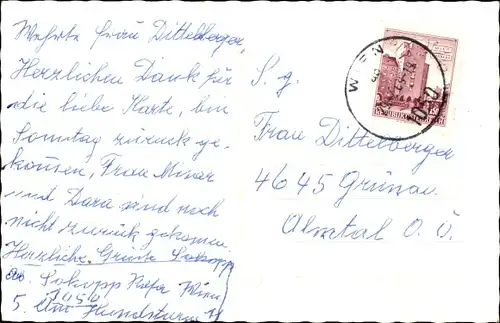 Wehrte Frau Dittelberger,
Herzlichen Dank für
die liebe Karte, bin
Sonntag zurück ge-
kommen, Frau Minar
und Dara sind noch
nicht zurück gekommen.
Herzliche Grüsse Sokopp
Sokopp Wien
1050
5. Am Hundsturm
S. g.
Frau Dittelberger
4645 Grünau
Almtal O. Ö.
WIEN
1050
REPUBLIK